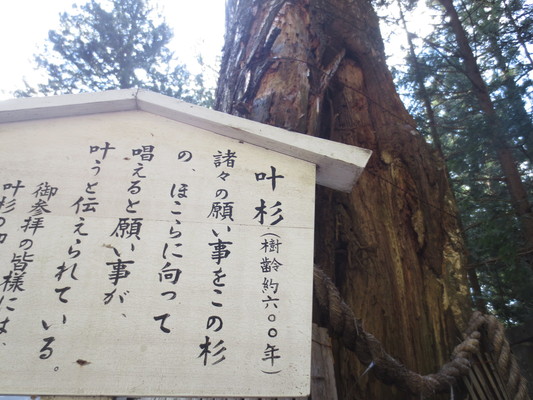 叶杉(樹齢約六〇〇年)
諸々の願い事をこの杉
の、ほこらに向って
唱えると願い事が、
叶うと伝えられている。
御参拝の皆様には、
叶杉の